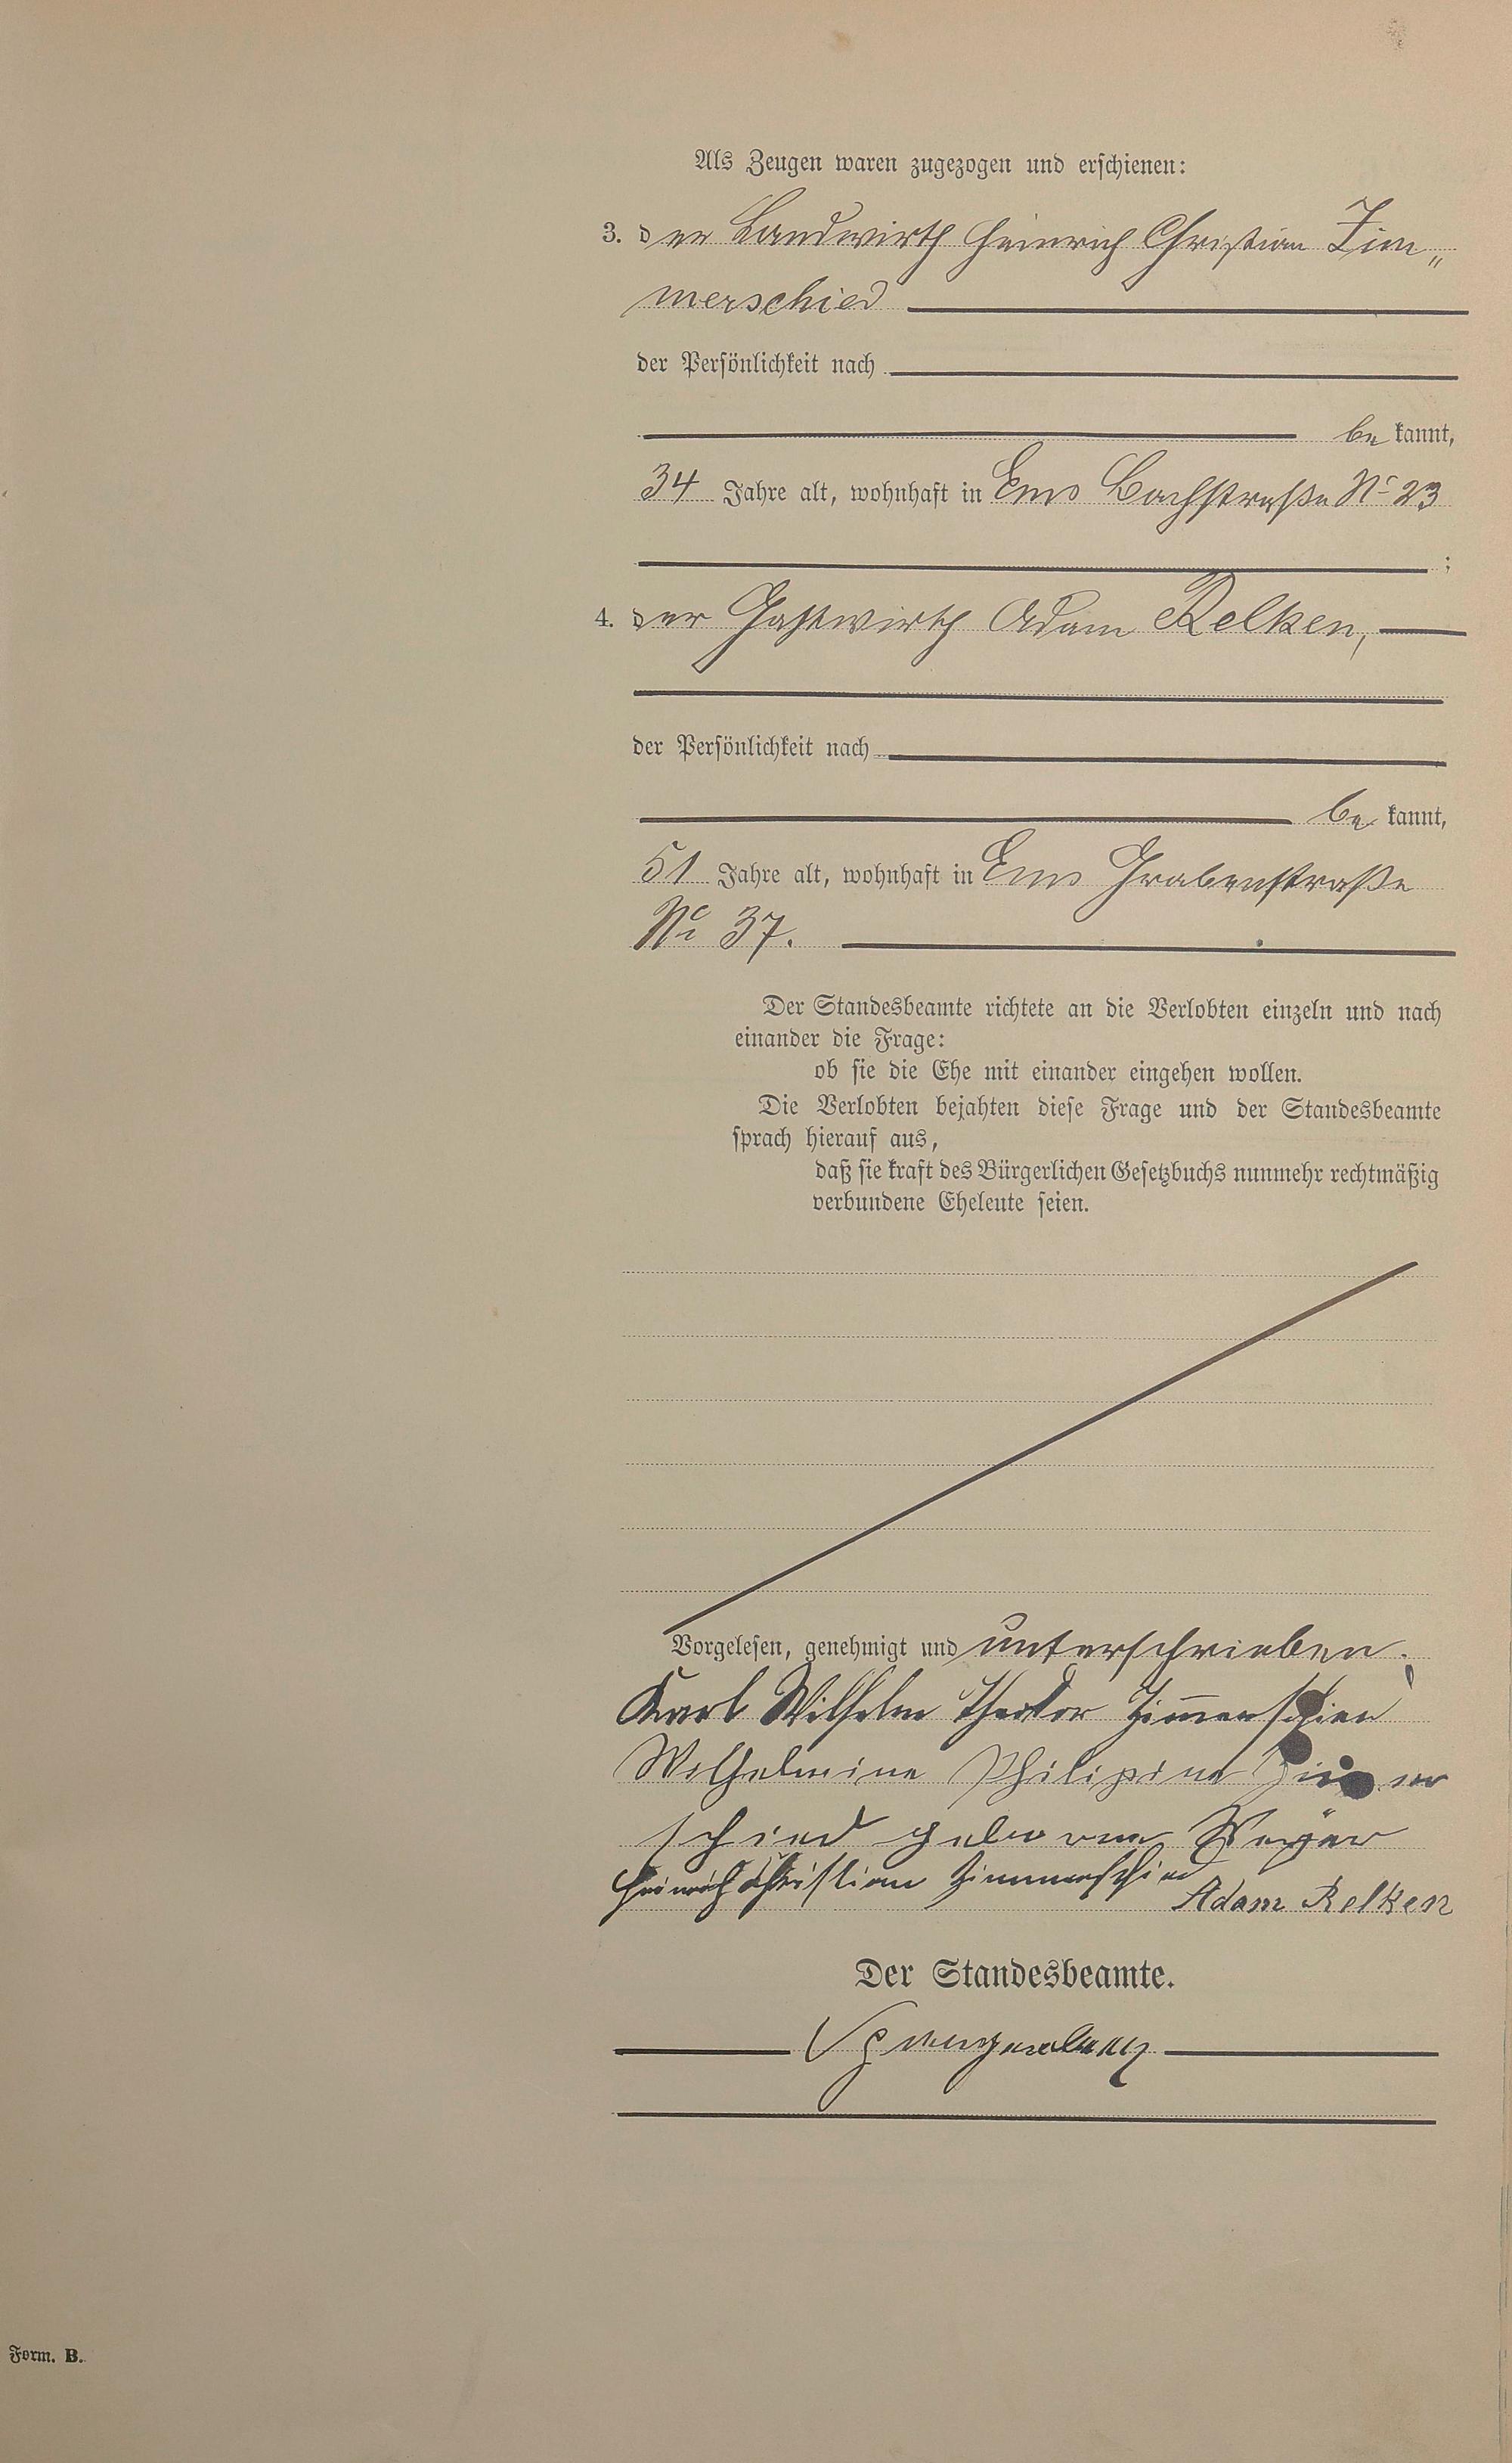 Als Zeugen waren zugezogen und erschienen:
3. der Landwirth Heinrich Christian Zim„
merschied
der Persönlichkeit nach
be kannt,
34 Jahre alt, wohnhaft in Ems Bachstraße No 23
;
4. der Gastwirth Adam Relken,
der Persönlichkeit nach
be kannt,
51 Jahre alt, wohnhaft in Ems Grabenstraße
No 37.
Der Standesbeamte richtete an die Verlobten einzeln und nach
einander die Frage:
ob sie die Ehe mit einander eingehen wollen.
Die Verlobten bejahten diese Frage und der Standesbeamte
sprach hierauf aus,
daß sie kraft des Bürgerlichen Gesetzbuchs nunmehr rechtmäßig
verbundene Eheleute seien.
Vorgelesen, genehmigt und unterschrieben.
Karl Wilhelm Theodor Zimmerschied
Wilhelmine Philipine Zimmer
schied geborene
Heinrich Christian Zimmerschied
Adam Relken
Der Standesbeamte.
Form. B.